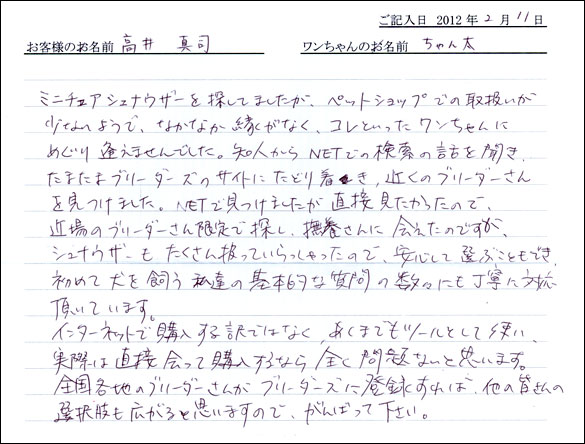 ご記入日 2012年2月11日
お客様のお名前 高井 真司 ワンちゃんのお名前 ちゃん太
ミニチュアシュナウザーを探してましたが、ペットショップでの取扱いが
少ないようで、なかなか縁がなく、コレといったワンちゃんに
めぐり逢えませんでした。知人からNETでの検索の話を聞き、
たまたまブリーダーズのサイトにたどり着き、近くのブリーダーさん
を見つけました。NETで見つけましたが直接見たかったので、
近場のブリーダーさん限定で探し、撫養さんに会えたのですが、
シュナウザーもたくさん扱っていらっしゃったので、安心して選ぶこともでき、
初めて犬を飼う私達の基本的な質問の数々にも丁寧に対応
頂いています。
インターネットで購入する訳ではなく、あくまでもツールとして使い、
実際は直接会って購入するなら全く問題ないと思います。
全国各地のブリーダーさんがブリーダーズに登録すれば、他の皆さんの
選択肢も広がると思いますので、がんばって下さい。